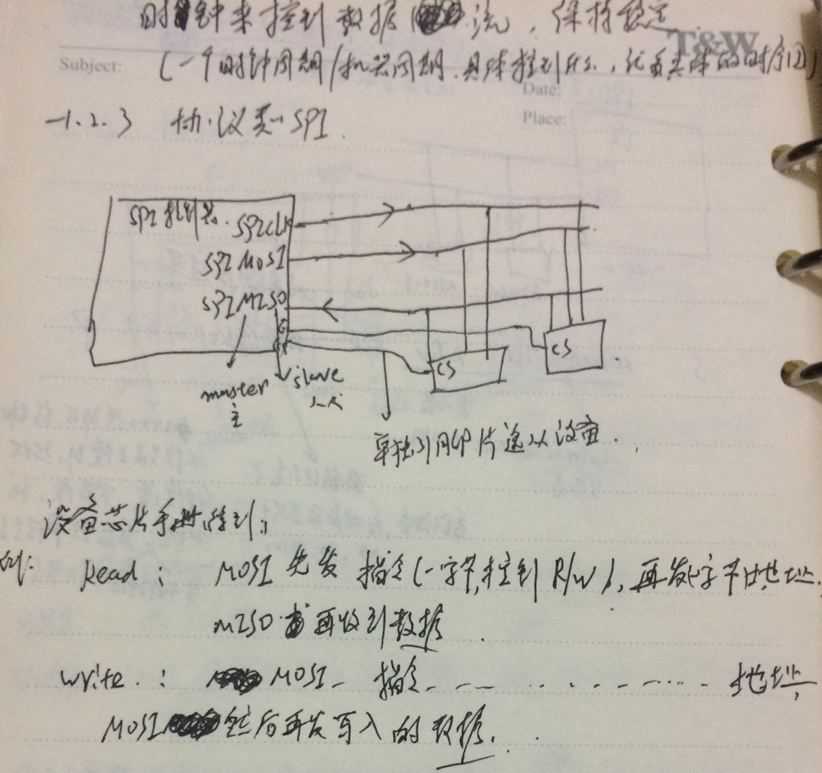 时钟来控制数据流，保持稳定
T&W
(一个时钟周期/机器周期.具体控制什么,就看具体的时序图)
Subject:
Date:
Place:
-1.2.3 协议类-SPI.
SPI控制器. SPICLK
SPI MOSI
SPI MISO
CS
CS
master slave
主 从
单独引脚片选从设备.
设备芯片手册得到:
例:
Read: MOSI先发 指令(一字节,控制R/W),再发一字节地址.
MISO 再收到数据.
write.: MOSI- 指令---- 地址,
MOSI 然后再发写入的数据.